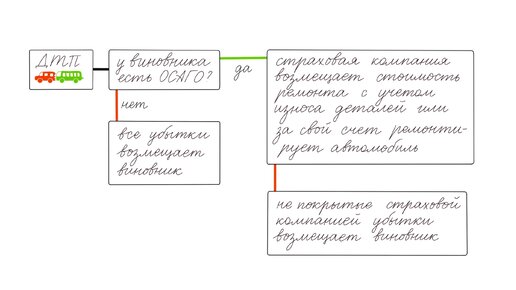 ДТП
у виновника
есть ОСАГО?
да
нет
все убытки
возмещает
виновник
страховая компания
возмещает стоимость
ремонта с учетом
износа деталей или
за свой счет ремонти-
рует автомобиль
не покрытые страховой
компанией убытки
возмещает виновник